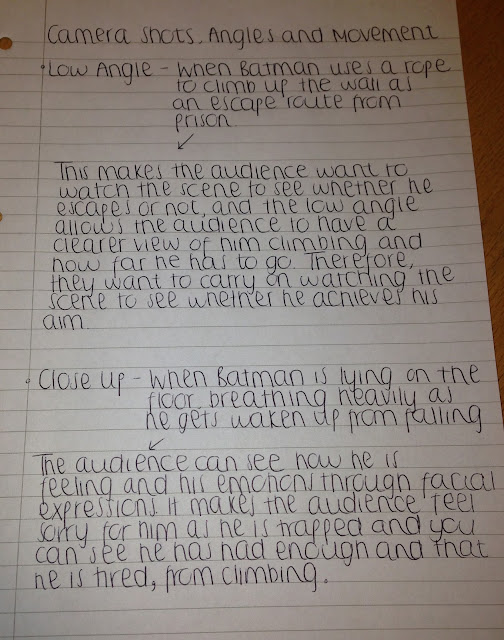 Camera Shots, Angles and Movement
• Low Angle - When Batman uses a rope
to climb up the wall as
an escape route from
prison.
This makes the audience want to
watch the scene to see whether he
escapes or not, and the low angle
allows the audience to have a
clearer view of him climbing and
how far he has to go. Therefore,
they want to carry on watching the
scene to see whether he achieves his
aim.
• Close Up - When Batman is lying on the
floor breathing heavily as
he gets waken up from falling
The audience can see how he is
feeling and his emotions through facial
expressions. It makes the audience feel
sorry for him as he is trapped and you
can see he has had enough and that
he is tired, from climbing.